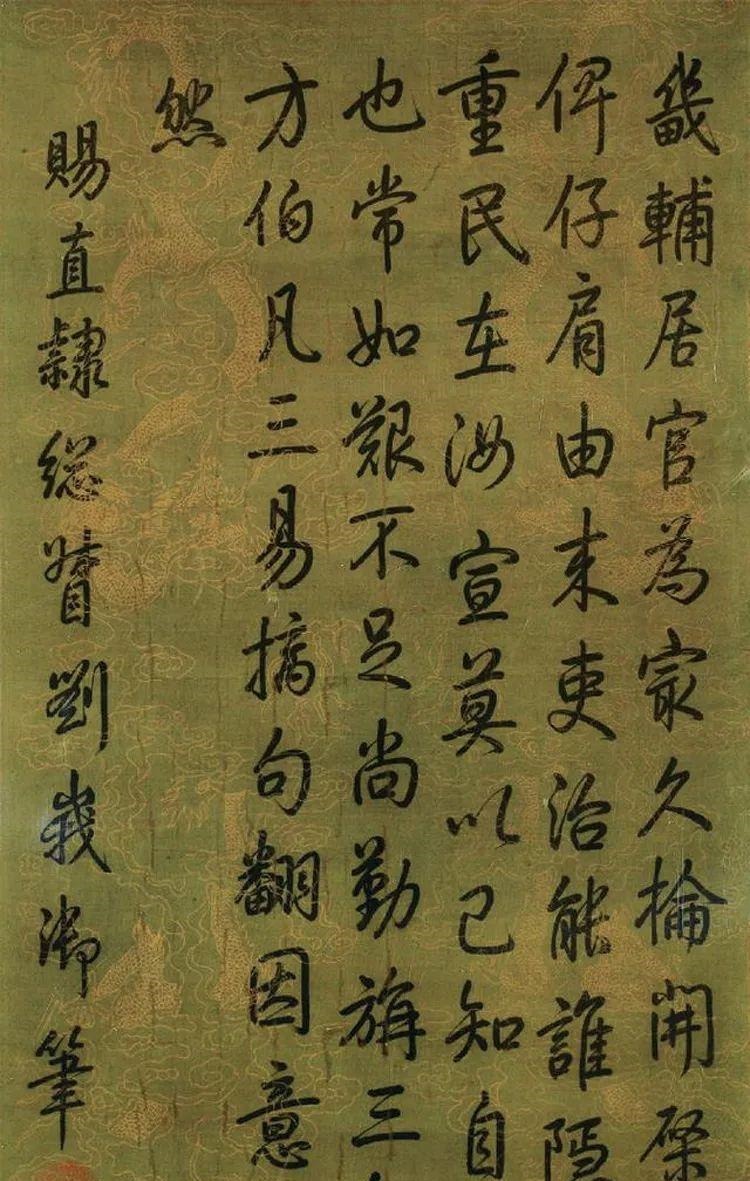 畿輔居官為家久掄開棨
俾仔肩由来吏治能誰隔
重民在汝宣莫以已知自
也常如艱不足尚勤旃三
方伯凡三易摛句翻因意
然
賜直隸総督劉峩御筆